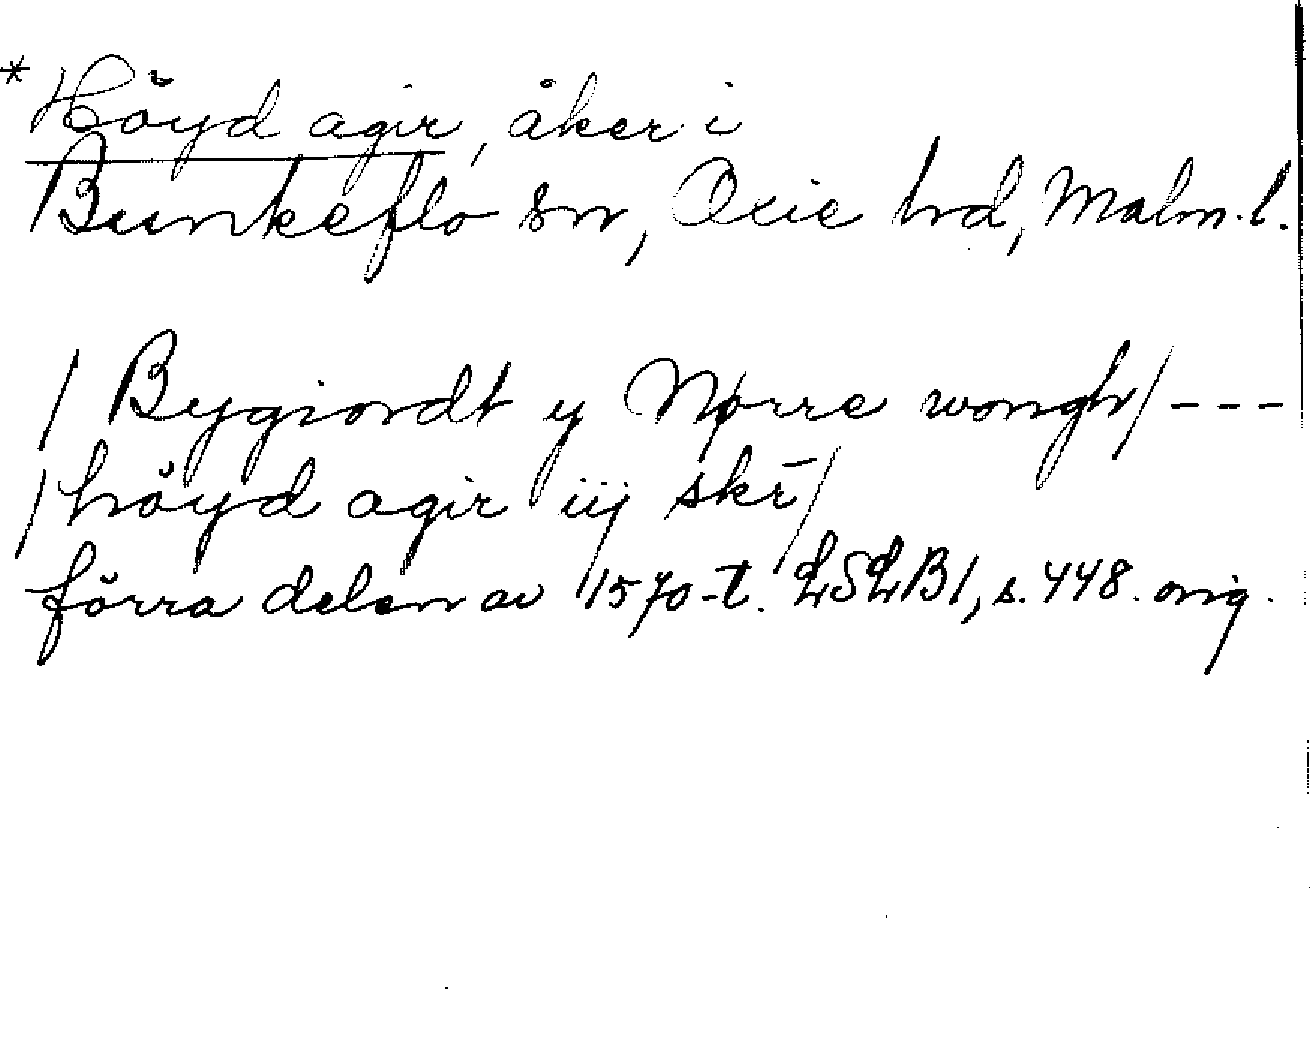 *Höyd agir, åker i
Bunkeflo sn, Oxie hd, Malm.l.
/ Bygiordt y Nørre wongh/ ---
/höyd agir iij skr̄/
förra delen av 1570-t. LSLB1, s. 448. orig.